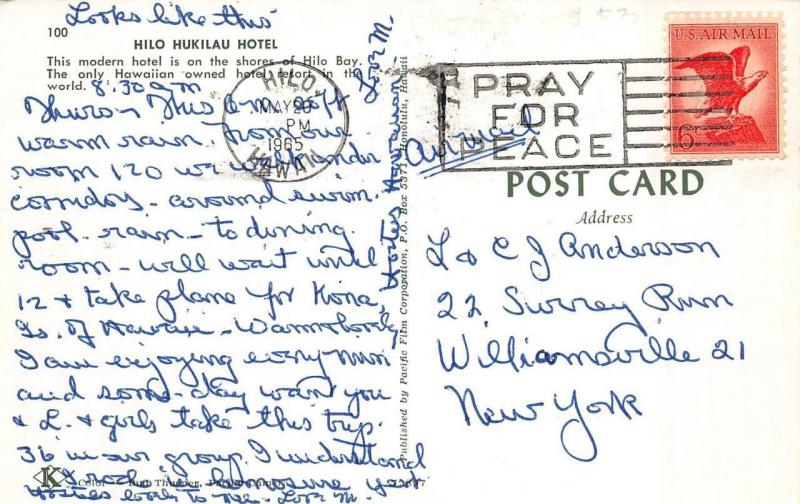 Looks like this
100
HILO HUKILAU HOTEL
This modern hotel is on the shores of Hilo Bay.
The only Hawaiian owned hotel resort in the
world.
8.30 am
Thurs - This am soft
warm rain. From our
room 120 we walk under
corridors - around swim.
pool - rain - to dining
room - will wait until
12 & take plane for Kona,
Is. of Hawaii -
I am enjoying every min
and some - day want you
& L. & girls take this trip.
36 in our group. I understand
Love M.
K
Color
Published by Pacific Film Corporation, P.O. Box Honolulu, Hawaii
HILO
MAY 20
PM
1965
HAWAII
PRAY
FOR
PEACE
U.S. AIR MAIL
6¢
Airmail
POST CARD
Address
L & C J Anderson
22 Surrey Run
Williamsville 21
New York